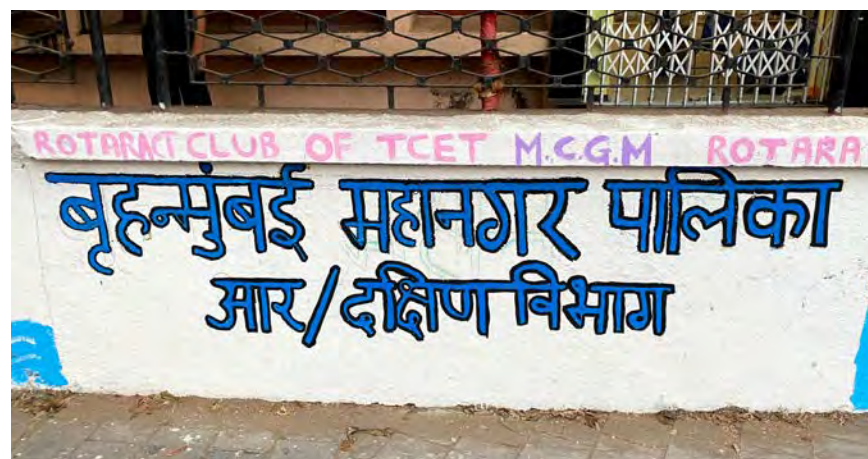 ROTARACT CLUB OF TCET M.C.G.M ROTARA
बृहन्मुंबई महानगर पालिका
आर/दक्षिण विभाग